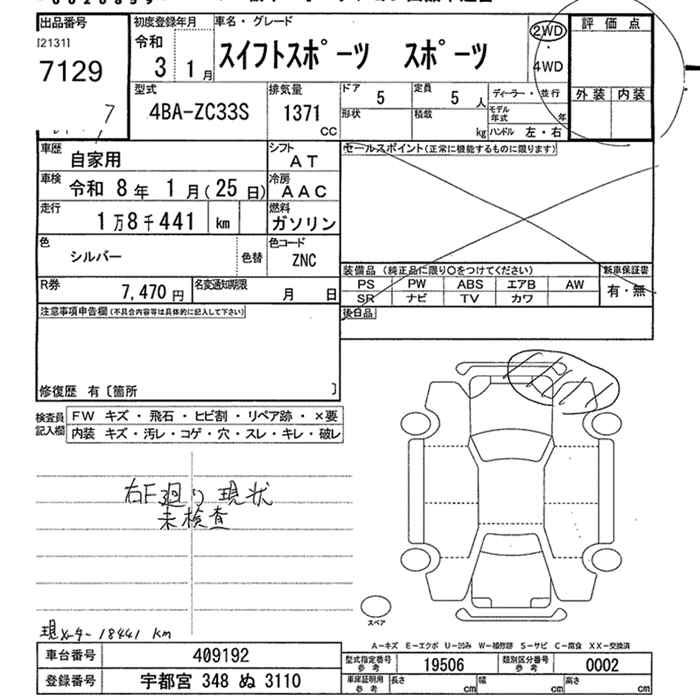 出品番号 初度登録年月 車名・グレード 評価点
[2131] 令和
7129 3 1月 スイフトスポーツ スポーツ 2WD ・ 4WD
外装 内装
型式 4BA-ZC33S 排気量 1371 CC ドア 5 定員 5 人 ディーラー・並行
7 形状 積載 kg モデル年式 年
ハンドル 左・右
車歴 自家用 シフト AT セールスポイント(正常に機能するものに限ります)
車検 令和 8年 1月(25日) 冷房 AAC
走行 1万8千441 km 燃料 ガソリン
色 シルバー 色替 色コード ZNC
装備品(純正品に限り○をつけてください) 新車保証書
R券 7,470円 名変通知期限 月 日 PS PW ABS エアB AW 有・無
SR ナビ TV カワ
注意事項申告欄(不具合内容等は具体的に記入して下さい) 後日品
修復歴 有〔箇所 〕
検査員記入欄 FW キズ・飛石・ヒビ割・リペア跡・×要
内装 キズ・汚レ・コゲ・穴・スレ・キレ・破レ
右F廻り現状
未検査
スペア
現メーター 18441 km
A-キズ E-エクボ U-凹み W-補修跡 S-サビ C-腐食 XX-交換済
車台番号 409192 型式指定番号 参考 19506 類別区分番号 参考 0002
登録番号 宇都宮 348 ぬ 3110 車庫証明用 参考 長さ cm 幅 cm 高さ cm